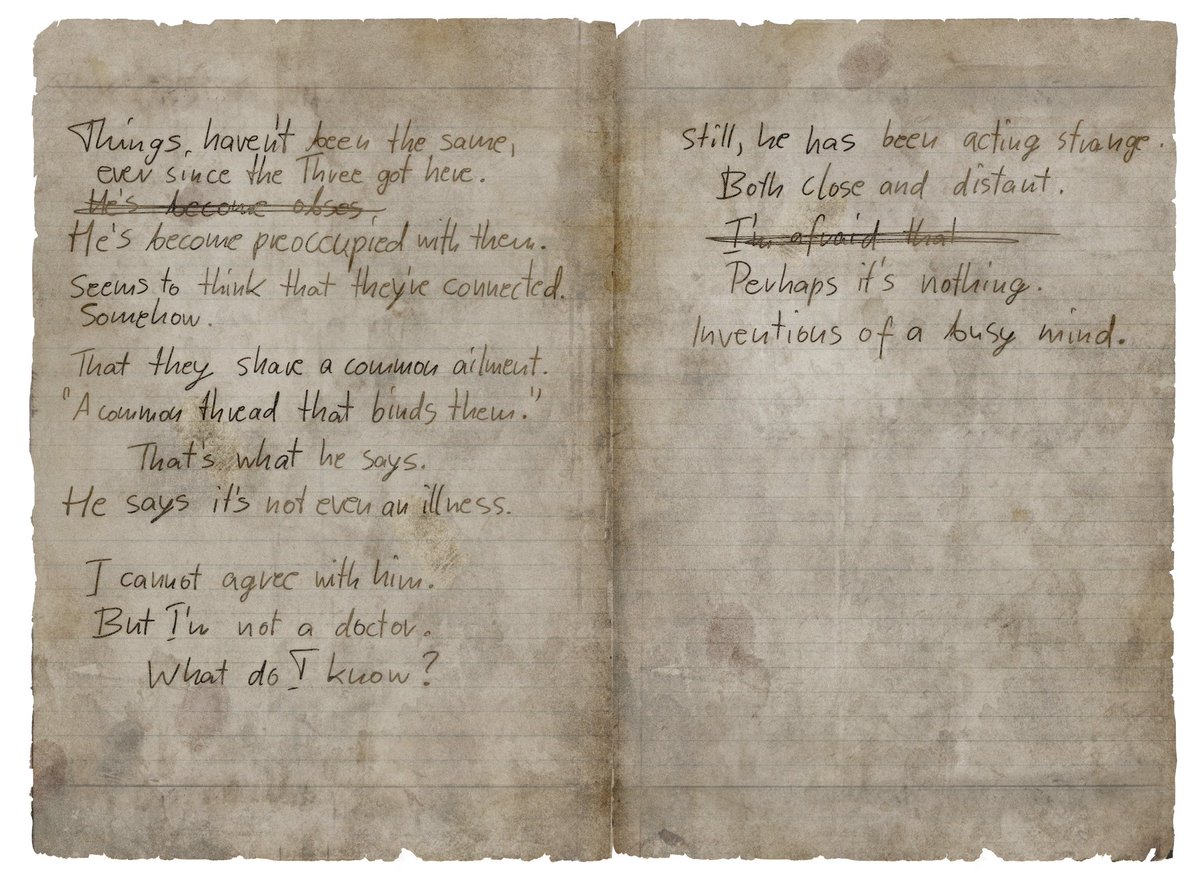 Things, haven't been the same,
ever since the Three got here.
He's become obses
He's become preoccupied with them.
Seems to think that they're connected.
Somehow.
That they share a common ailment.
"A common thread that binds them."
That's what he says.
He says it's not even an illness.
I cannot agree with him.
But I'm not a doctor.
What do I know?
Still, he has been acting strange.
Both close and distant.
I'm afraid that
Perhaps it's nothing.
Inventions of a busy mind.